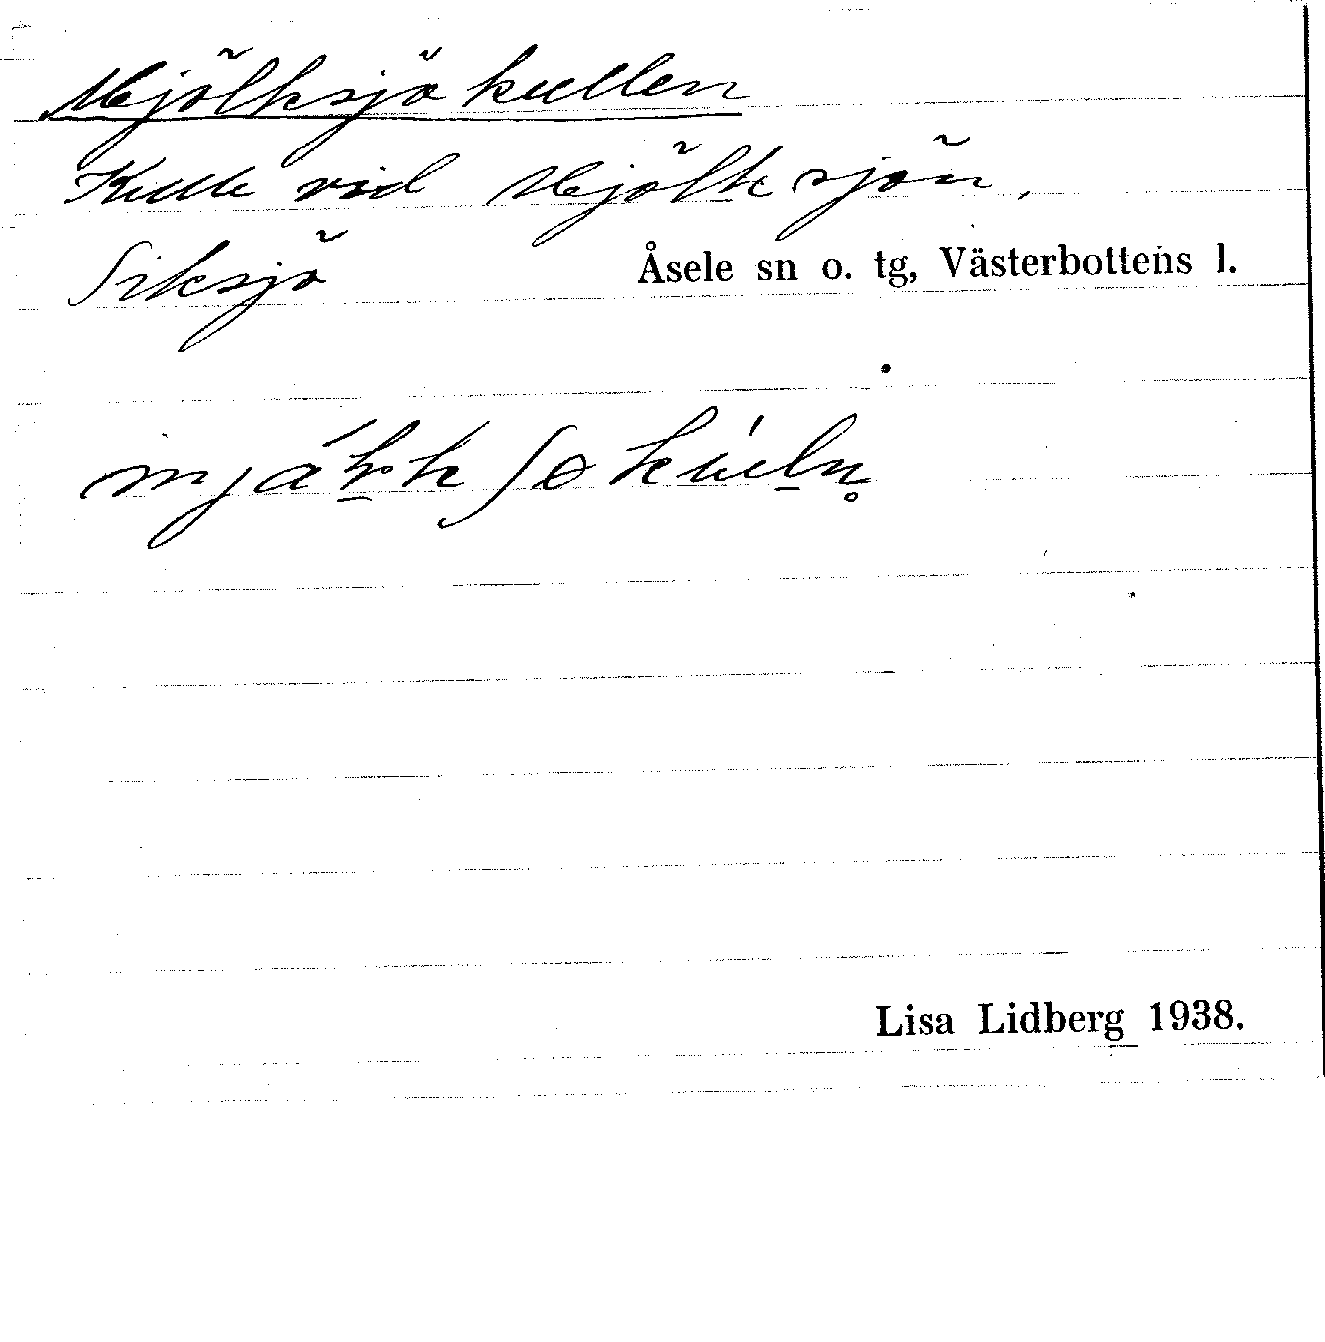 Mjölksjökullen
Kulle vid Mjölksjön,
Siksjö Åsele sn o. tg, Västerbottens l.
Lisa Lidberg 1938.